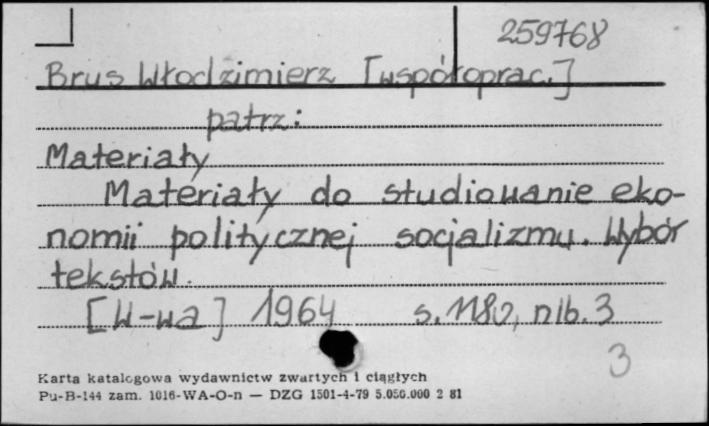 259768
Brus Włodzimierz [współoprac.]
patrz:
Materiały
Materiały do studiowanie eko-
nomii politycznej socjalizmu. Wybór
tekstów.
[W-wa] 1964 s. 1180, nlb. 3
3
Karta katalogowa wydawnictw zwartych i ciągłych
Pu-B-144 zam. 1016-WA-O-n — DZG 1501-4-79 5.050.000 2 81